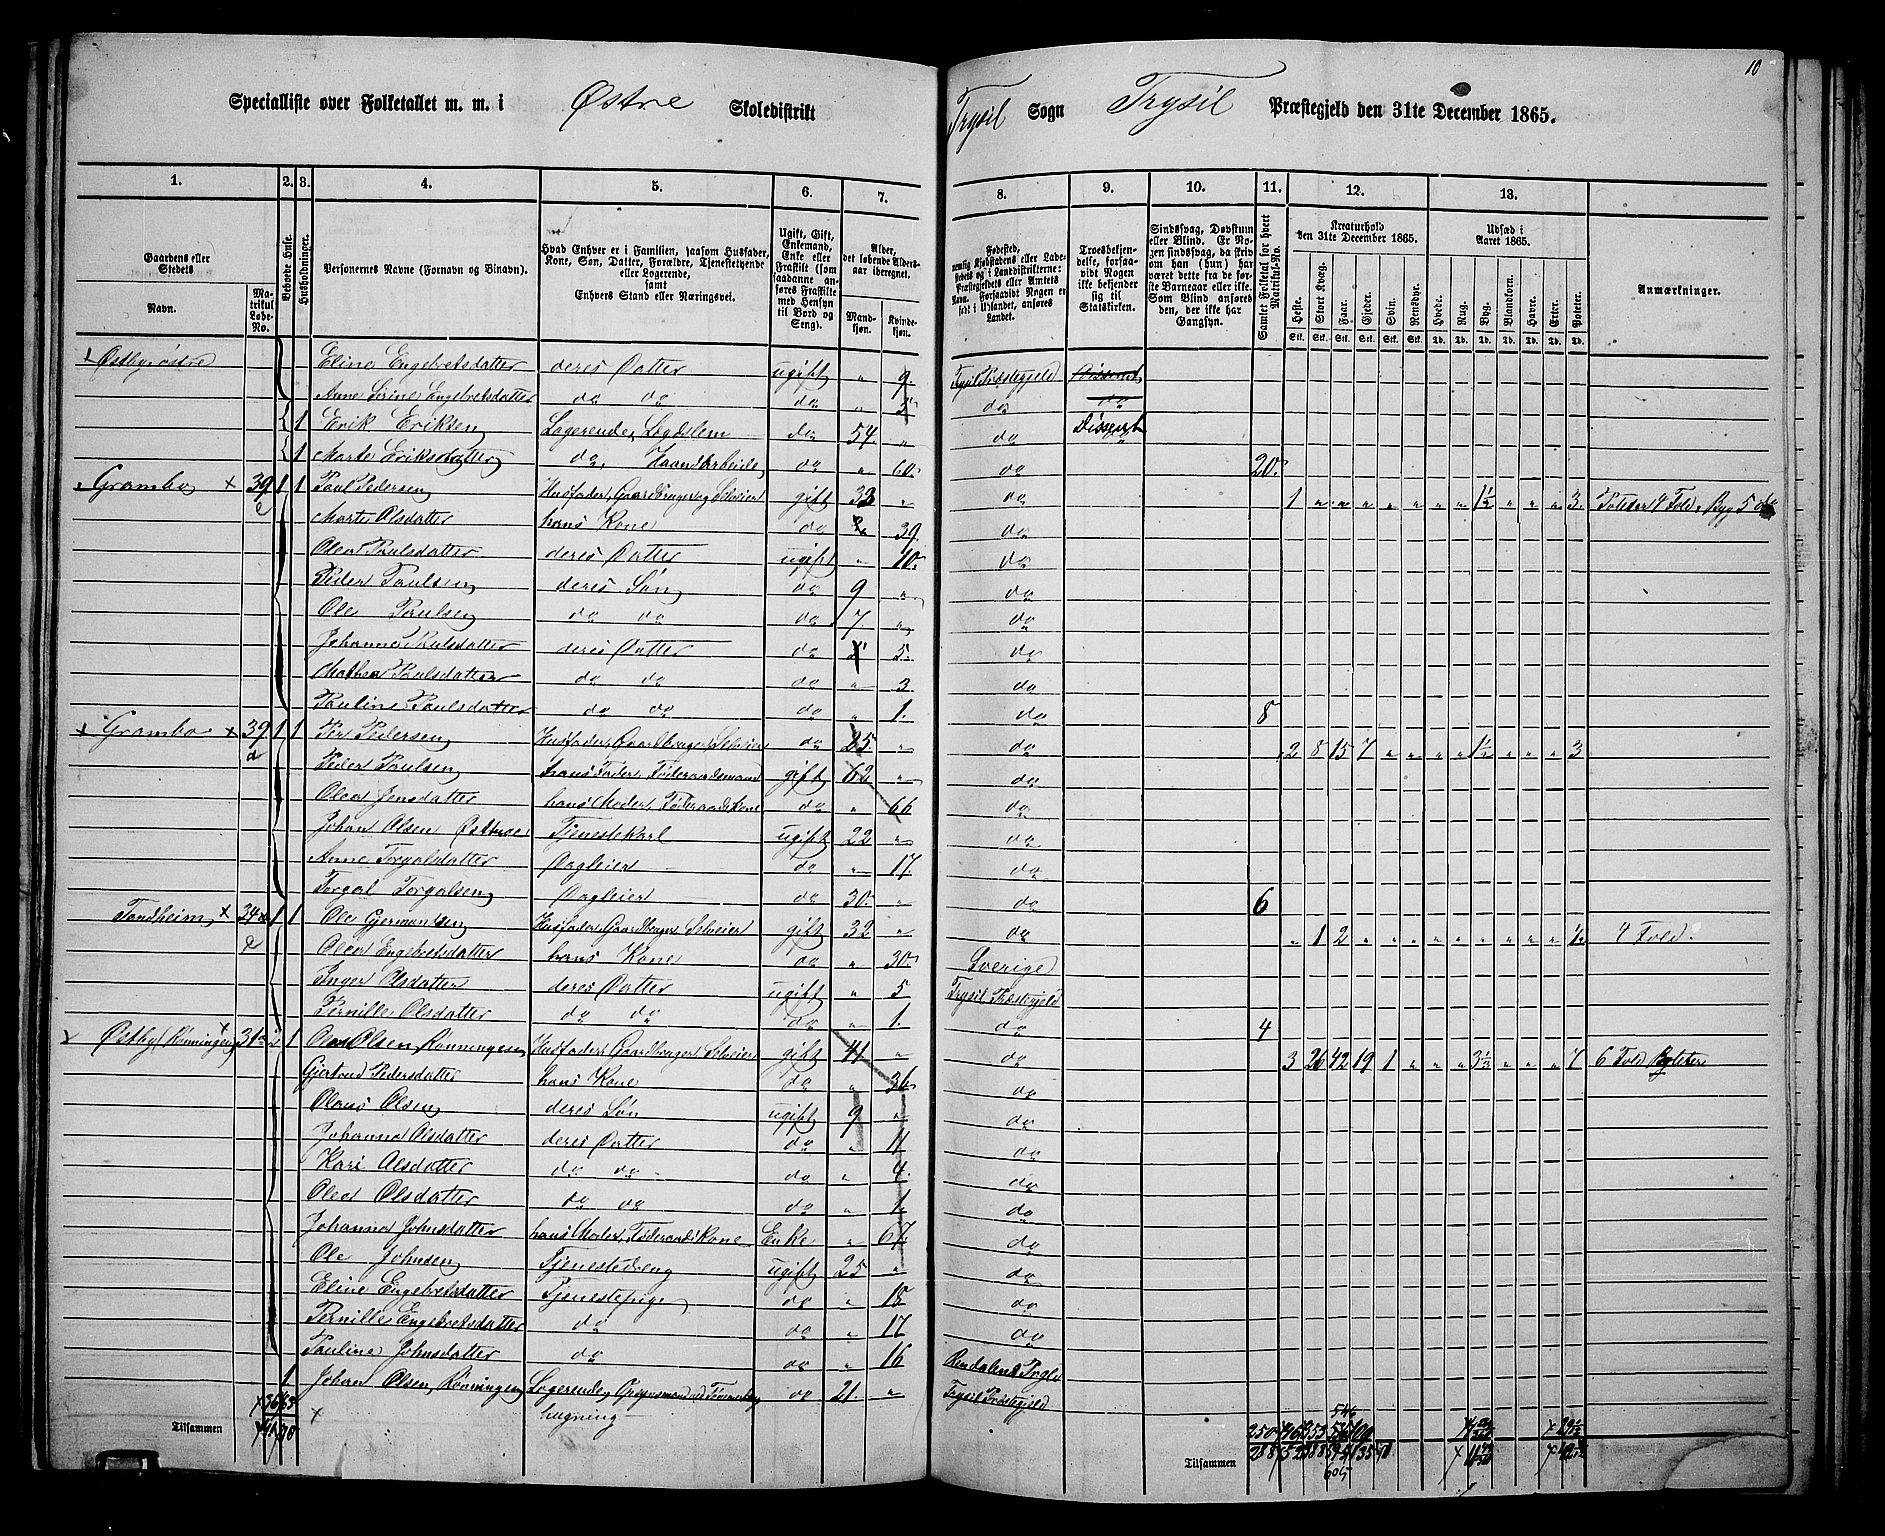 10
Specialliste over Folketallet m. m. i Østre Skoledistrikt Trysil Sogn Trysil Præstegjeld den 31te December 1865.
1. 2. 3. 4. 5. 6. 7. 8. 9. 10. 11. 12. 13.
Gaardens eller Stedets
Navn.
Matrikul Løbe-No.
Beboede Huse.
Husholdninger.
Personernes Navne (Fornavn og Binavn).
Hvad Enhver er i Familien, saasom Husfader, Kone, Søn, Datter, Forældre, Tjenestetyende eller Logerende, samt Enhvers Stand eller Næringsvei.
Ugift, Gift, Enkemand, Enke eller Fraskilt (som saadanne anføres Fraskilte med Hensyn til Bord og Seng).
Alder, det løbende Alders-aar iberegnet.
Mandkjøn. Kvindekjøn.
Fødested, nemlig Kjøbstadens eller Ladestedets og i Landdistrikterne: Præstegjeldets eller Amtets Navn. Forsaavidt Nogen er født i Udlandet, anføres Landet.
Troesbekjendelse, forsaavidt Nogen ikke bekjender sig til Statskirken.
Sindssvag, Døvstum eller Blind. Er Nogen sindssvag, da skriv om han (hun) har været dette fra de første Barneaar eller ikke. Som Blind anføres den, der ikke har Gangsyn.
Samlet Folketal for hvert Matrikul-No.
Kreaturhold den 31te December 1865.
Heste. Stort Kvæg. Faar. Gjeder. Svin. Rensdyr.
Udsæd i Aaret 1865.
Hvede. Rug. Byg. Blandkorn. Havre. Erter. Poteter.
Anmærkninger.
Østby østre Eline Engebretsdatter deres Datter ugift " 9. Trysil Præstegjeld Dissent
Anne Sirine Engebretsdatter do do do " 5 do do
1 Erik Eriksen Logerende, Lægdslem do 54 " do Dissent
1 Marte Eriksdatter do, Haandarbeide do " 60. do 20.
Grambo 39 c 1 1 Paul Pedersen Husfader, Gaardbruger og Selveier gift 33 " do 1 " " " " " " " 1½ " " " 3. Poteter 4 Fold, Byg 5 do
Marte Olsdatter hans Kone do " 39. do
Olea Paulsdatter deres Datter ugift " 10. do
Peder Paulsen deres Søn do 9 " do
Ole Paulsen do do do 7. " do
Johanne Paulsdatter deres Datter do 5. do
Mathea Paulsdatter do do do " 3. do
Pauline Paulsdatter do do do " 1. do 8
Grambo 39 d 1 1 Per Pedersen Husfader, Gaardbruger, Selveier do 25. " do 2 8 15 7 " " " " 1½ " " " 3
Peder Paulsen hans Fader, Føderaadsmand gift 62 " do
Olea Jensdatter hans Moder, Føderaadskone do " 66 do
Johan Olsen Tjenestekarl ugift 22 " do
Anne Torgalsdatter Dagleier do " 17. do
Torgal Torgalsen Dagleier do 30. " do 6
Tandheim 34 e 1 1 Ole Gjermundsen Husfader, Gaardbruger, Selveier gift 32 " do " 1 2 " " " " " " " " " ½ 4 Fold.
Olea Engebretsdatter hans Kone do " 30. Sverige
Inger Olsdatter deres Datter ugift " 5 Trysil Præstegjeld
Pernille Olsdatter do do do " 1. do 4
Østby (Rønningen) 31 1 Ole Olsen Rønningen Husfader, Gaardbruger, Selveier gift 41 " do 3 26 42 19 1 " " " 3½ " " " 7 6 Fold
Gjertrud Pedersdatter hans Kone do " 36. do
Olaus Olsen deres Søn ugift 9 " do
Johanna Olsdatter deres Datter do " 11 do
Kari Olsdatter do do do " 4. do
Olea Olsdatter do do do " 1. do
Johanna Johnsdatter hans Moder, Føderaadskone Enke " 67. do
Ole Johnsen Tjenestedreng ugift 25 " do
Eline Engebretsdatter Tjenestepige do " 18 do
Pernille Engebretsdatter do do " 17 do
Pauline Johnsdatter do do " 16 Rendalens Prgld
1 Johan Olsen Rønningen Logerende, Opsynsmand ved Tømmerhugning do 21. " Trysil Præstegjeld
Tilsammen
Tilsammen